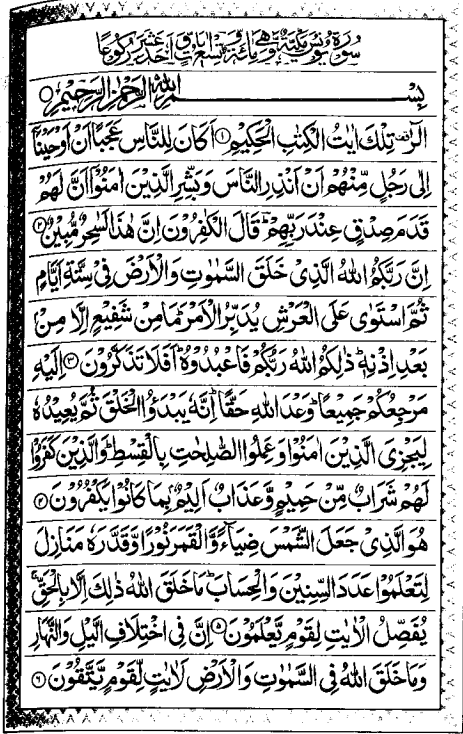 سورة يونس مكية وهي مائة وتسع آيات واحد عشر ركوعا
بِسْمِ اللهِ الرَّحْمٰنِ الرَّحِيْمِ ○
الٓرٰ تِلْكَ اٰيٰتُ الْكِتٰبِ الْحَكِيْمِ ① اَكَانَ لِلنَّاسِ عَجَبًا اَنْ اَوْحَيْنَاۤ
اِلٰى رَجُلٍ مِّنْهُمْ اَنْ اَنْذِرِ النَّاسَ وَبَشِّرِ الَّذِيْنَ اٰمَنُوْۤا اَنَّ لَهُمْ
قَدَمَ صِدْقٍ عِنْدَ رَبِّهِمْ ؕ قَالَ الْكٰفِرُوْنَ اِنَّ هٰذَا لَسٰحِرٌ مُّبِيْنٌ ②
اِنَّ رَبَّكُمُ اللهُ الَّذِيْ خَلَقَ السَّمٰوٰتِ وَالْاَرْضَ فِيْ سِتَّةِ اَيَّامٍ
ثُمَّ اسْتَوٰى عَلَى الْعَرْشِ يُدَبِّرُ الْاَمْرَ ؕ مَا مِنْ شَفِيْعٍ اِلَّا مِنْۢ
بَعْدِ اِذْنِهٖ ؕ ذٰلِكُمُ اللهُ رَبُّكُمْ فَاعْبُدُوْهُ ؕ اَفَلَا تَذَكَّرُوْنَ ③ اِلَيْهِ
مَرْجِعُكُمْ جَمِيْعًا ؕ وَعْدَ اللهِ حَقًّا ؕ اِنَّهٗ يَبْدَؤُا الْخَلْقَ ثُمَّ يُعِيْدُهٗ
لِيَجْزِيَ الَّذِيْنَ اٰمَنُوْا وَعَمِلُوا الصّٰلِحٰتِ بِالْقِسْطِ ؕ وَالَّذِيْنَ كَفَرُوْا
لَهُمْ شَرَابٌ مِّنْ حَمِيْمٍ وَّعَذَابٌ اَلِيْمٌۢ بِمَا كَانُوْا يَكْفُرُوْنَ ④
هُوَ الَّذِيْ جَعَلَ الشَّمْسَ ضِيَآءً وَّالْقَمَرَ نُوْرًا وَّقَدَّرَهٗ مَنَازِلَ
لِتَعْلَمُوْا عَدَدَ السِّنِيْنَ وَالْحِسَابَ ؕ مَا خَلَقَ اللهُ ذٰلِكَ اِلَّا بِالْحَقِّ ۚ
يُفَصِّلُ الْاٰيٰتِ لِقَوْمٍ يَّعْلَمُوْنَ ⑤ اِنَّ فِي اخْتِلَافِ الَّيْلِ وَالنَّهَارِ
وَمَا خَلَقَ اللهُ فِي السَّمٰوٰتِ وَالْاَرْضِ لَاٰيٰتٍ لِّقَوْمٍ يَّتَّقُوْنَ ⑥